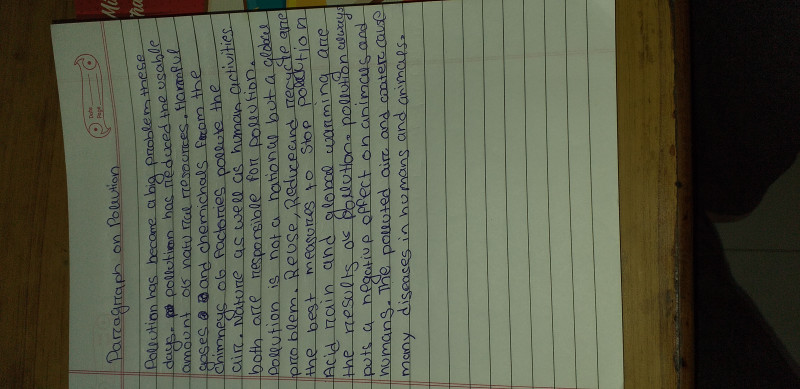 Date
Page
Paragraph on Pollution
Pollution has became a big problem these
days. pollution has reduced the usable
amount of natural resources. Harmful
gases and chemichals from the
Chimneys of factories pollute the
air. Nature as well as human activities
both are responsible for pollution.
Pollution is not a national but a global
problem. Reuse, Reduce and recycle are
the best measures to stop pollution
Acid rain and global warming are
the results of pollution. pollution always
puts a negative effect on animals and
humans. The polluted air and water cause
many diseases in humans and animals.